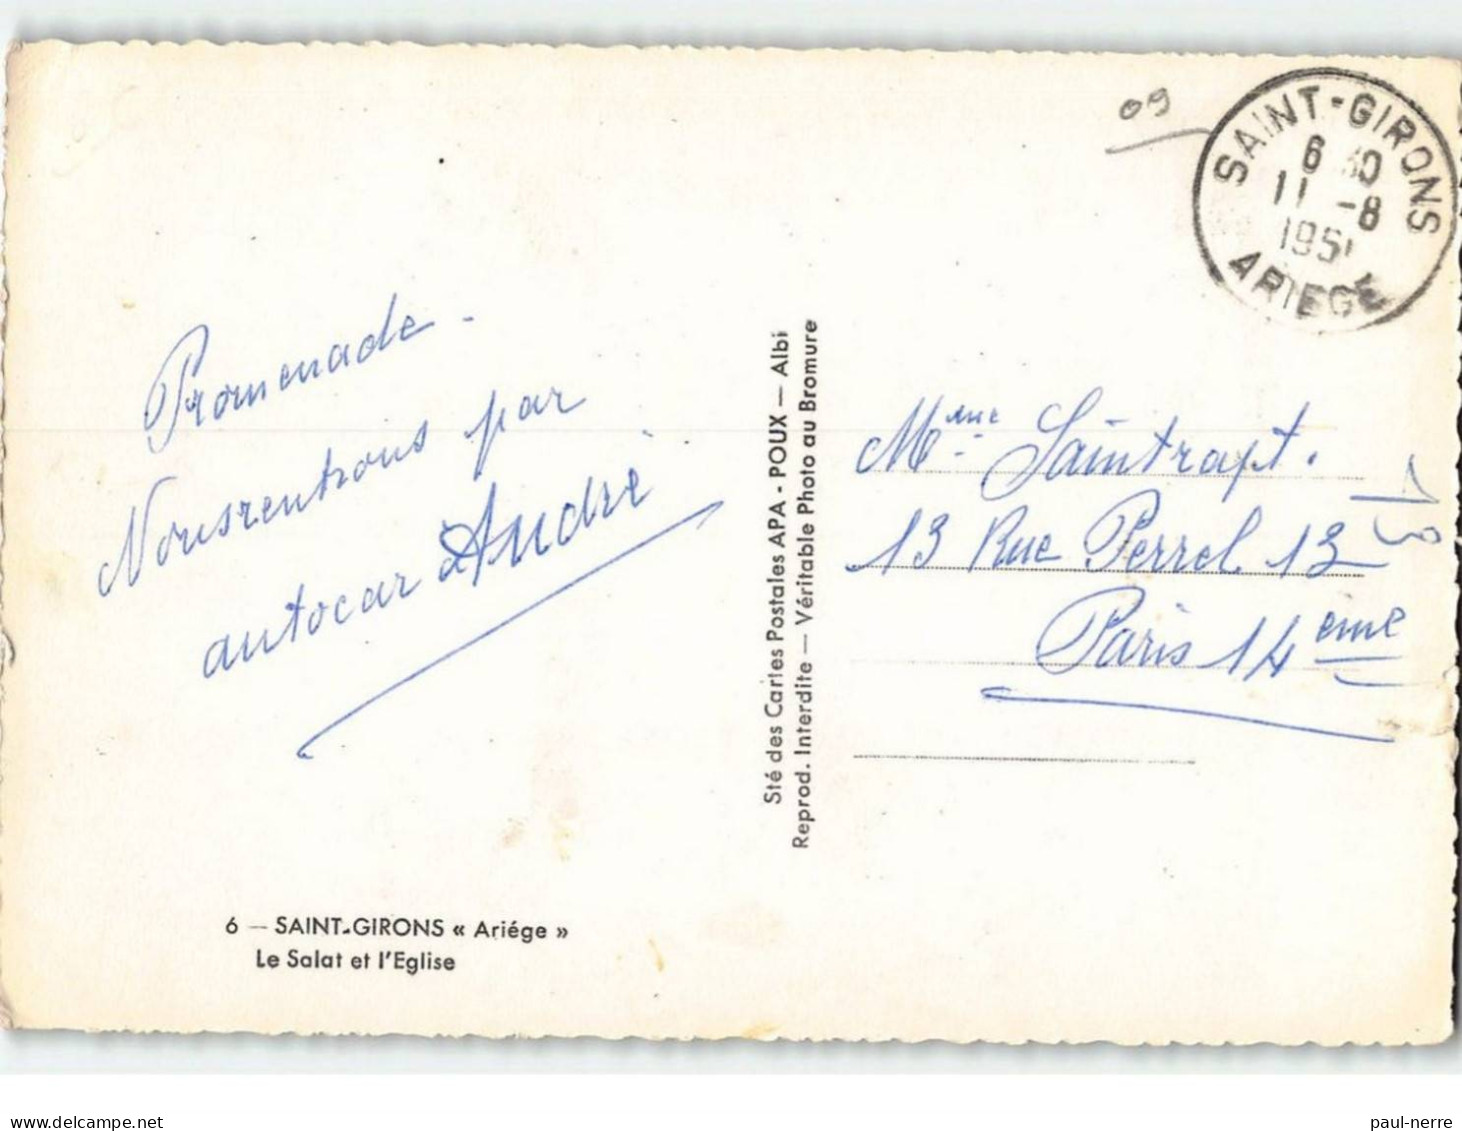 09
SAINT-GIRONS
6 30
11 -8
1951
ARIEGE
Promenade -
Nous rentrons par
autocar André
Mme Saintrapt.
13 Rue Perrel 13
13
Paris 14eme
Sté des Cartes Postales APA - POUX — Albi
Reprod. Interdite — Véritable Photo au Bromure
6 — SAINT-GIRONS « Ariége »
Le Salat et l'Eglise
delcampe.net
paul-nerre